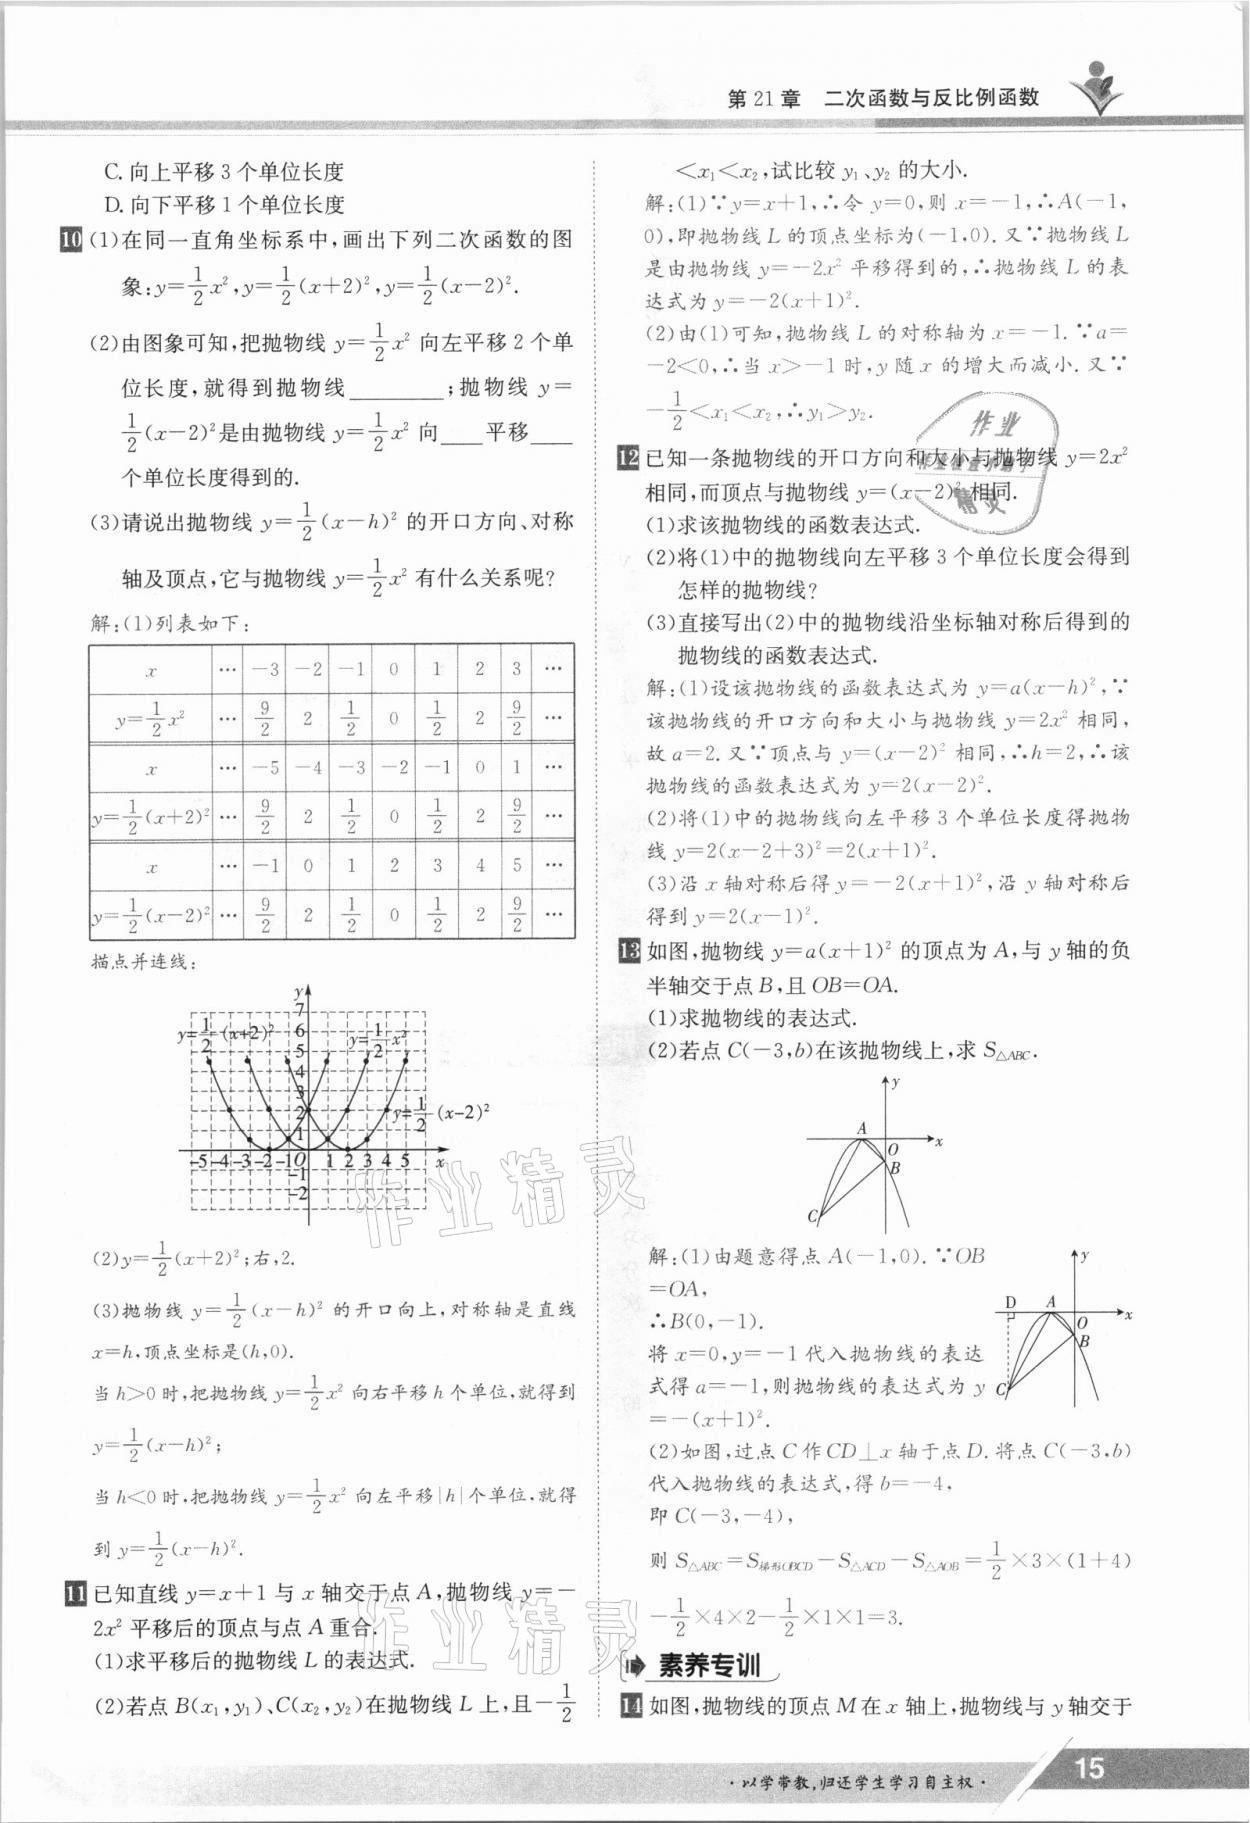 第 21 章 二次函数与反比例函数
C. 向上平移 3 个单位长度
D. 向下平移 1 个单位长度
10 (1)在同一直角坐标系中,画出下列二次函数的图
象:y=1/2x²,y=1/2(x+2)²,y=1/2(x-2)².
(2)由图象可知,把抛物线 y=1/2x² 向左平移 2 个单
位长度,就得到抛物线________;抛物线 y=
1/2(x-2)²是由抛物线 y=1/2x² 向____平移____
个单位长度得到的.
(3)请说出抛物线 y=1/2(x-h)² 的开口方向、对称
轴及顶点,它与抛物线 y=1/2x² 有什么关系呢?
解:(1)列表如下:
x … -3 -2 -1 0 1 2 3 …
y=1/2x² … 9/2 2 1/2 0 1/2 2 9/2 …
x … -5 -4 -3 -2 -1 0 1 …
y=1/2(x+2)² … 9/2 2 1/2 0 1/2 2 9/2 …
x … -1 0 1 2 3 4 5 …
y=1/2(x-2)² … 9/2 2 1/2 0 1/2 2 9/2 …
描点并连线:
y
7
y=1/2(x+2)² 6 y=1/2x²
5
4
3
2 y=1/2(x-2)²
1
-5 -4 -3 -2 -1 O 1 2 3 4 5 x
-1
-2
(2)y=1/2(x+2)²;右,2.
(3)抛物线 y=1/2(x-h)² 的开口向上,对称轴是直线
x=h,顶点坐标是(h,0).
当 h>0 时,把抛物线 y=1/2x² 向右平移 h 个单位,就得到
y=1/2(x-h)²;
当 h<0 时,把抛物线 y=1/2x² 向左平移|h|个单位,就得
到 y=1/2(x-h)².
11 已知直线 y=x+1 与 x 轴交于点 A,抛物线 y=-
2x² 平移后的顶点与点 A 重合.
(1)求平移后的抛物线 L 的表达式.
(2)若点 B(x₁,y₁)、C(x₂,y₂)在抛物线 L 上,且-1/2
<x₁<x₂,试比较 y₁、y₂ 的大小.
解:(1)∵y=x+1,∴令 y=0,则 x=-1,∴A(-1,
0),即抛物线 L 的顶点坐标为(-1,0). 又∵抛物线 L
是由抛物线 y=-2x² 平移得到的,∴抛物线 L 的表
达式为 y=-2(x+1)².
(2)由(1)可知,抛物线 L 的对称轴为 x=-1. ∵a=
-2<0,∴当 x>-1 时,y 随 x 的增大而减小. 又∵
-1/2<x₁<x₂,∴y₁>y₂.
12 已知一条抛物线的开口方向和大小与抛物线 y=2x²
相同,而顶点与抛物线 y=(x-2)² 相同.
(1)求该抛物线的函数表达式.
(2)将(1)中的抛物线向左平移 3 个单位长度会得到
怎样的抛物线?
(3)直接写出(2)中的抛物线沿坐标轴对称后得到的
抛物线的函数表达式.
解:(1)设该抛物线的函数表达式为 y=a(x-h)²,∵
该抛物线的开口方向和大小与抛物线 y=2x² 相同,
故 a=2. 又∵顶点与 y=(x-2)² 相同,∴h=2,∴该
抛物线的函数表达式为 y=2(x-2)².
(2)将(1)中的抛物线向左平移 3 个单位长度得抛物
线 y=2(x-2+3)²=2(x+1)².
(3)沿 x 轴对称后得 y=-2(x+1)²,沿 y 轴对称后
得到 y=2(x-1)².
13 如图,抛物线 y=a(x+1)² 的顶点为 A,与 y 轴的负
半轴交于点 B,且 OB=OA.
(1)求抛物线的表达式.
(2)若点 C(-3,b)在该抛物线上,求 S△ABC.
y
A
O x
B
C
解:(1)由题意得点 A(-1,0). ∵OB
=OA,
∴B(0,-1).
将 x=0,y=-1 代入抛物线的表达
式得 a=-1,则抛物线的表达式为 y
=-(x+1)².
y
D A
O x
B
C
(2)如图,过点 C 作 CD⊥x 轴于点 D. 将点 C(-3,b)
代入抛物线的表达式,得 b=-4,
即 C(-3,-4),
则 S△ABC=S梯形OBCD-S△ACD-S△AOB=1/2×3×(1+4)
-1/2×4×2-1/2×1×1=3.
素养专训
14 如图,抛物线的顶点 M 在 x 轴上,抛物线与 y 轴交于
·以学带教,归还学生学习自主权·
15
作业精灵
作业精灵
作业
精灵